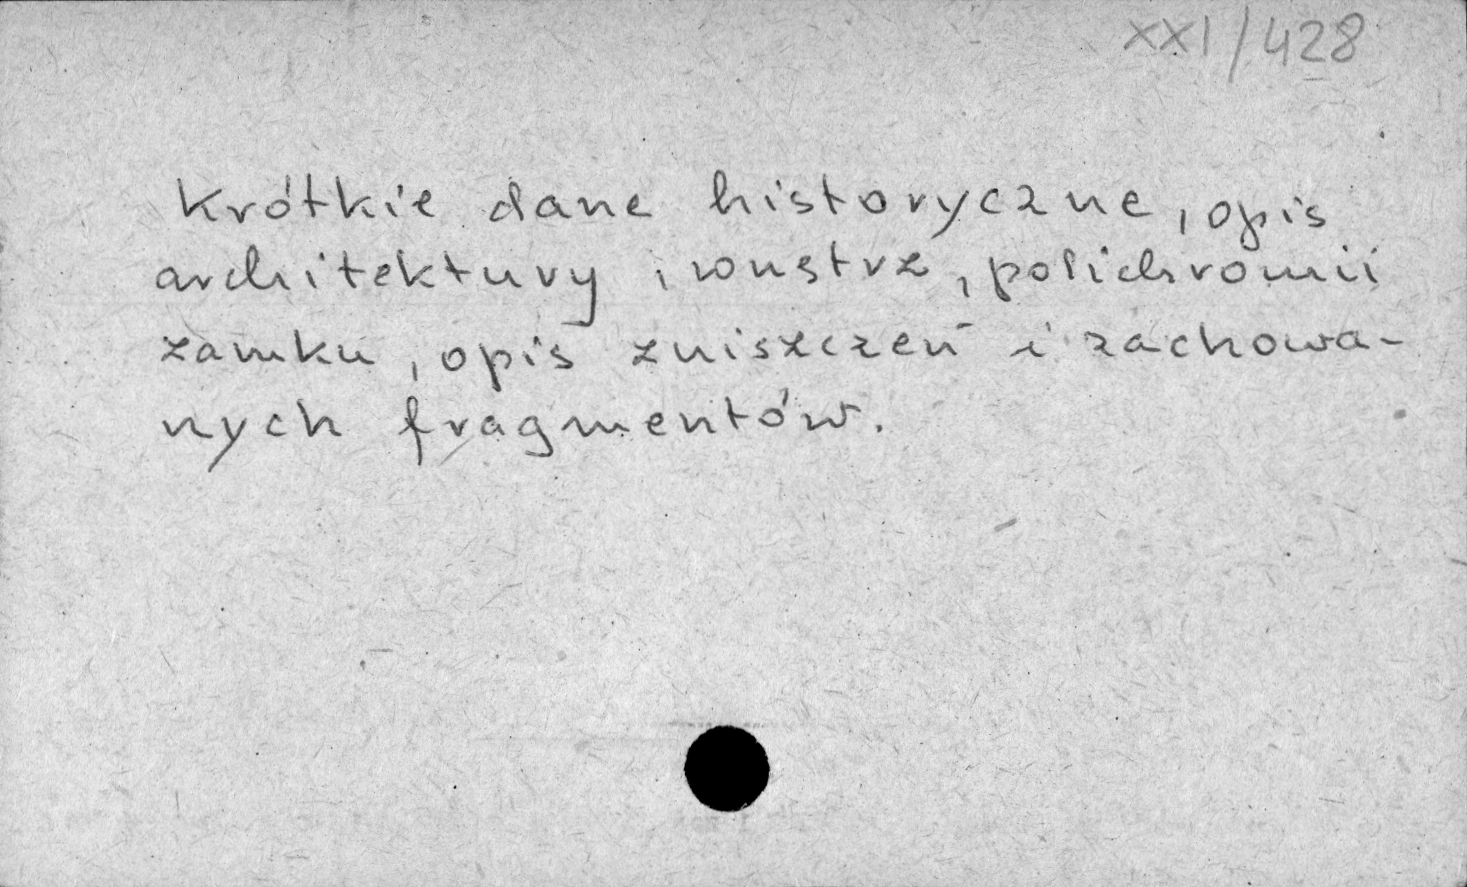 XXI/428
Krótkie dane historyczne, opis
architektury i wnętrz, polichromii
zamku, opis zniszczeń i zachowa-
nych fragmentów.